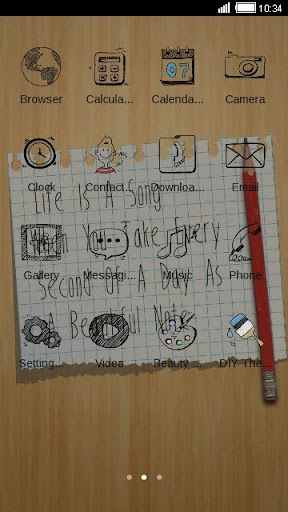 10:34
07
Browser Calcula... Calenda... Camera
Clock Contac... Downloa... Email
Life Is A Song
When You Take Every
Gallery Messagi... Music Phone
Second Of A Day As
A Beautiful Note
Setting... Video Beauty ... DIY The...